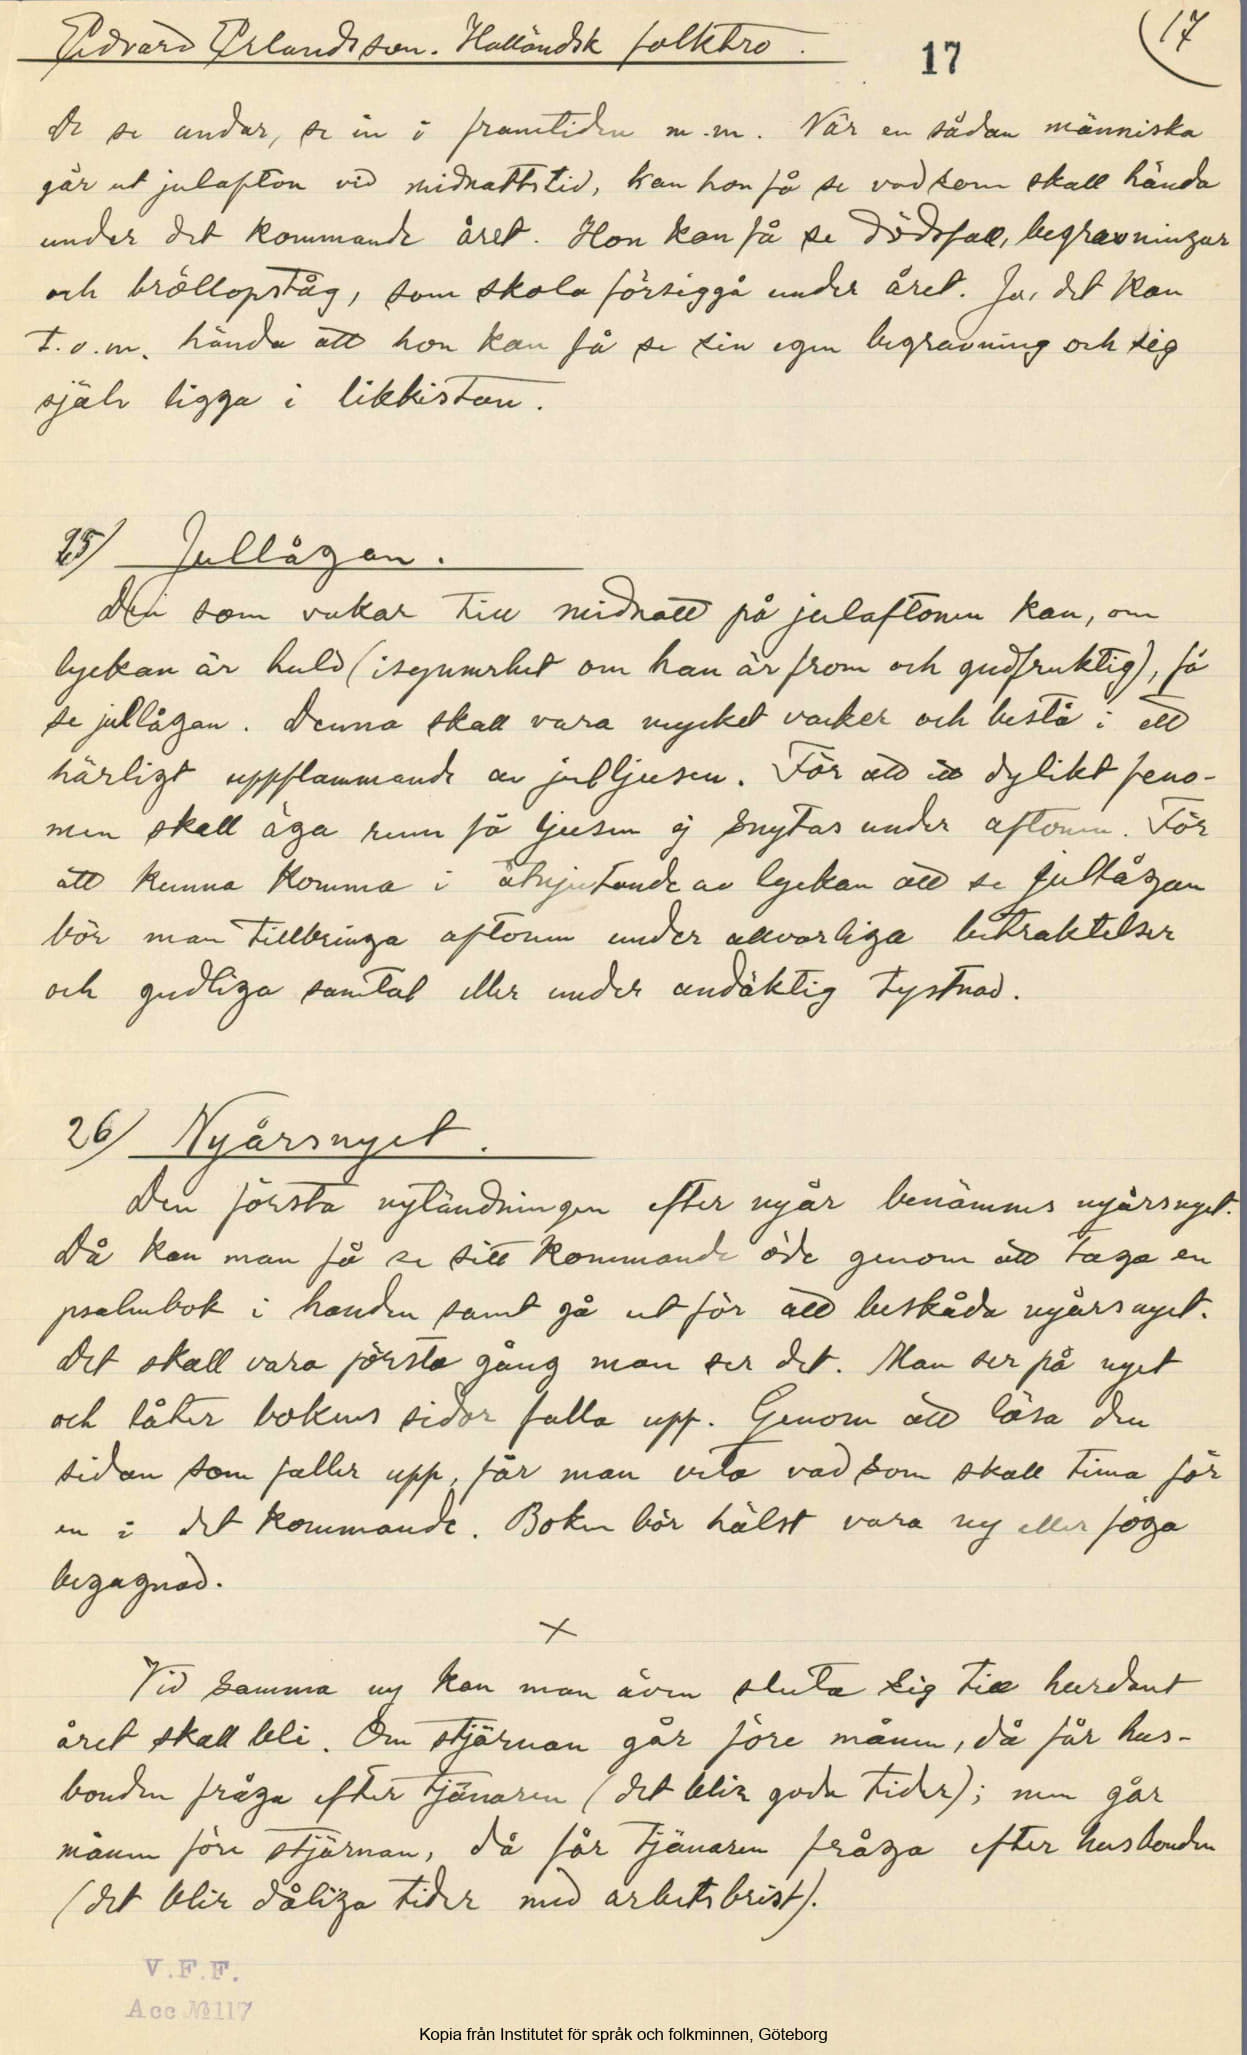 Edvard Erlandsson. Halländsk folktro.
17
17
De se andar, se in i framtiden m.m. När en sådan människa
går ut julafton vid midnattstid, kan hon få se vad som skall hända
under det kommande året. Hon kan få se dödsfall, begravningar
och bröllopståg, som skola försiggå under året. Ja, det kan
t.o.m. hända att hon kan få se sin egen begravning och sig
själv ligga i likkistan.
25/ Jullågan.
Den som vakar till midnatt på julaftonen kan, om
lyckan är huld (i synnerhet om han är from och gudfruktig), få
se jullågan. Denna skall vara mycket vacker och bestå i ett
härligt uppflammande av julljusen. För att ett dylikt feno-
men skall äga rum få ljusen ej snytas under aftonen. För
att kunna komma i åtnjutande av lyckan att se jullågan
bör man tillbringa aftonen under allvarliga betraktelser
och gudliga samtal eller under andäktig tystnad.
26/ Nyårsnyet.
Den första nytändningen efter nyår benämnes nyårsnyet.
Då kan man få se sitt kommande öde genom att taga en
psalmbok i handen samt gå ut för att beskåda nyårsnyet.
Det skall vara första gång man ser det. Man ser på nyet
och låter bokens sidor falla upp. Genom att läsa den
sidan som faller upp, får man veta vad som skall tima för
en i det kommande. Boken bör hälst vara ny eller föga
begagnad.
x
Vid samma ny kan man även sluta sig till hurdant
året skall bli. Om stjärnan går före månen, då får hus-
bonden fråga efter tjänaren (det blir goda tider); men går
månen före stjärnan, då får tjänaren fråga efter husbonden
(det blir dåliga tider med arbetsbrist).
V.F.F.
Acc № 117
Kopia från Institutet för språk och folkminnen, Göteborg